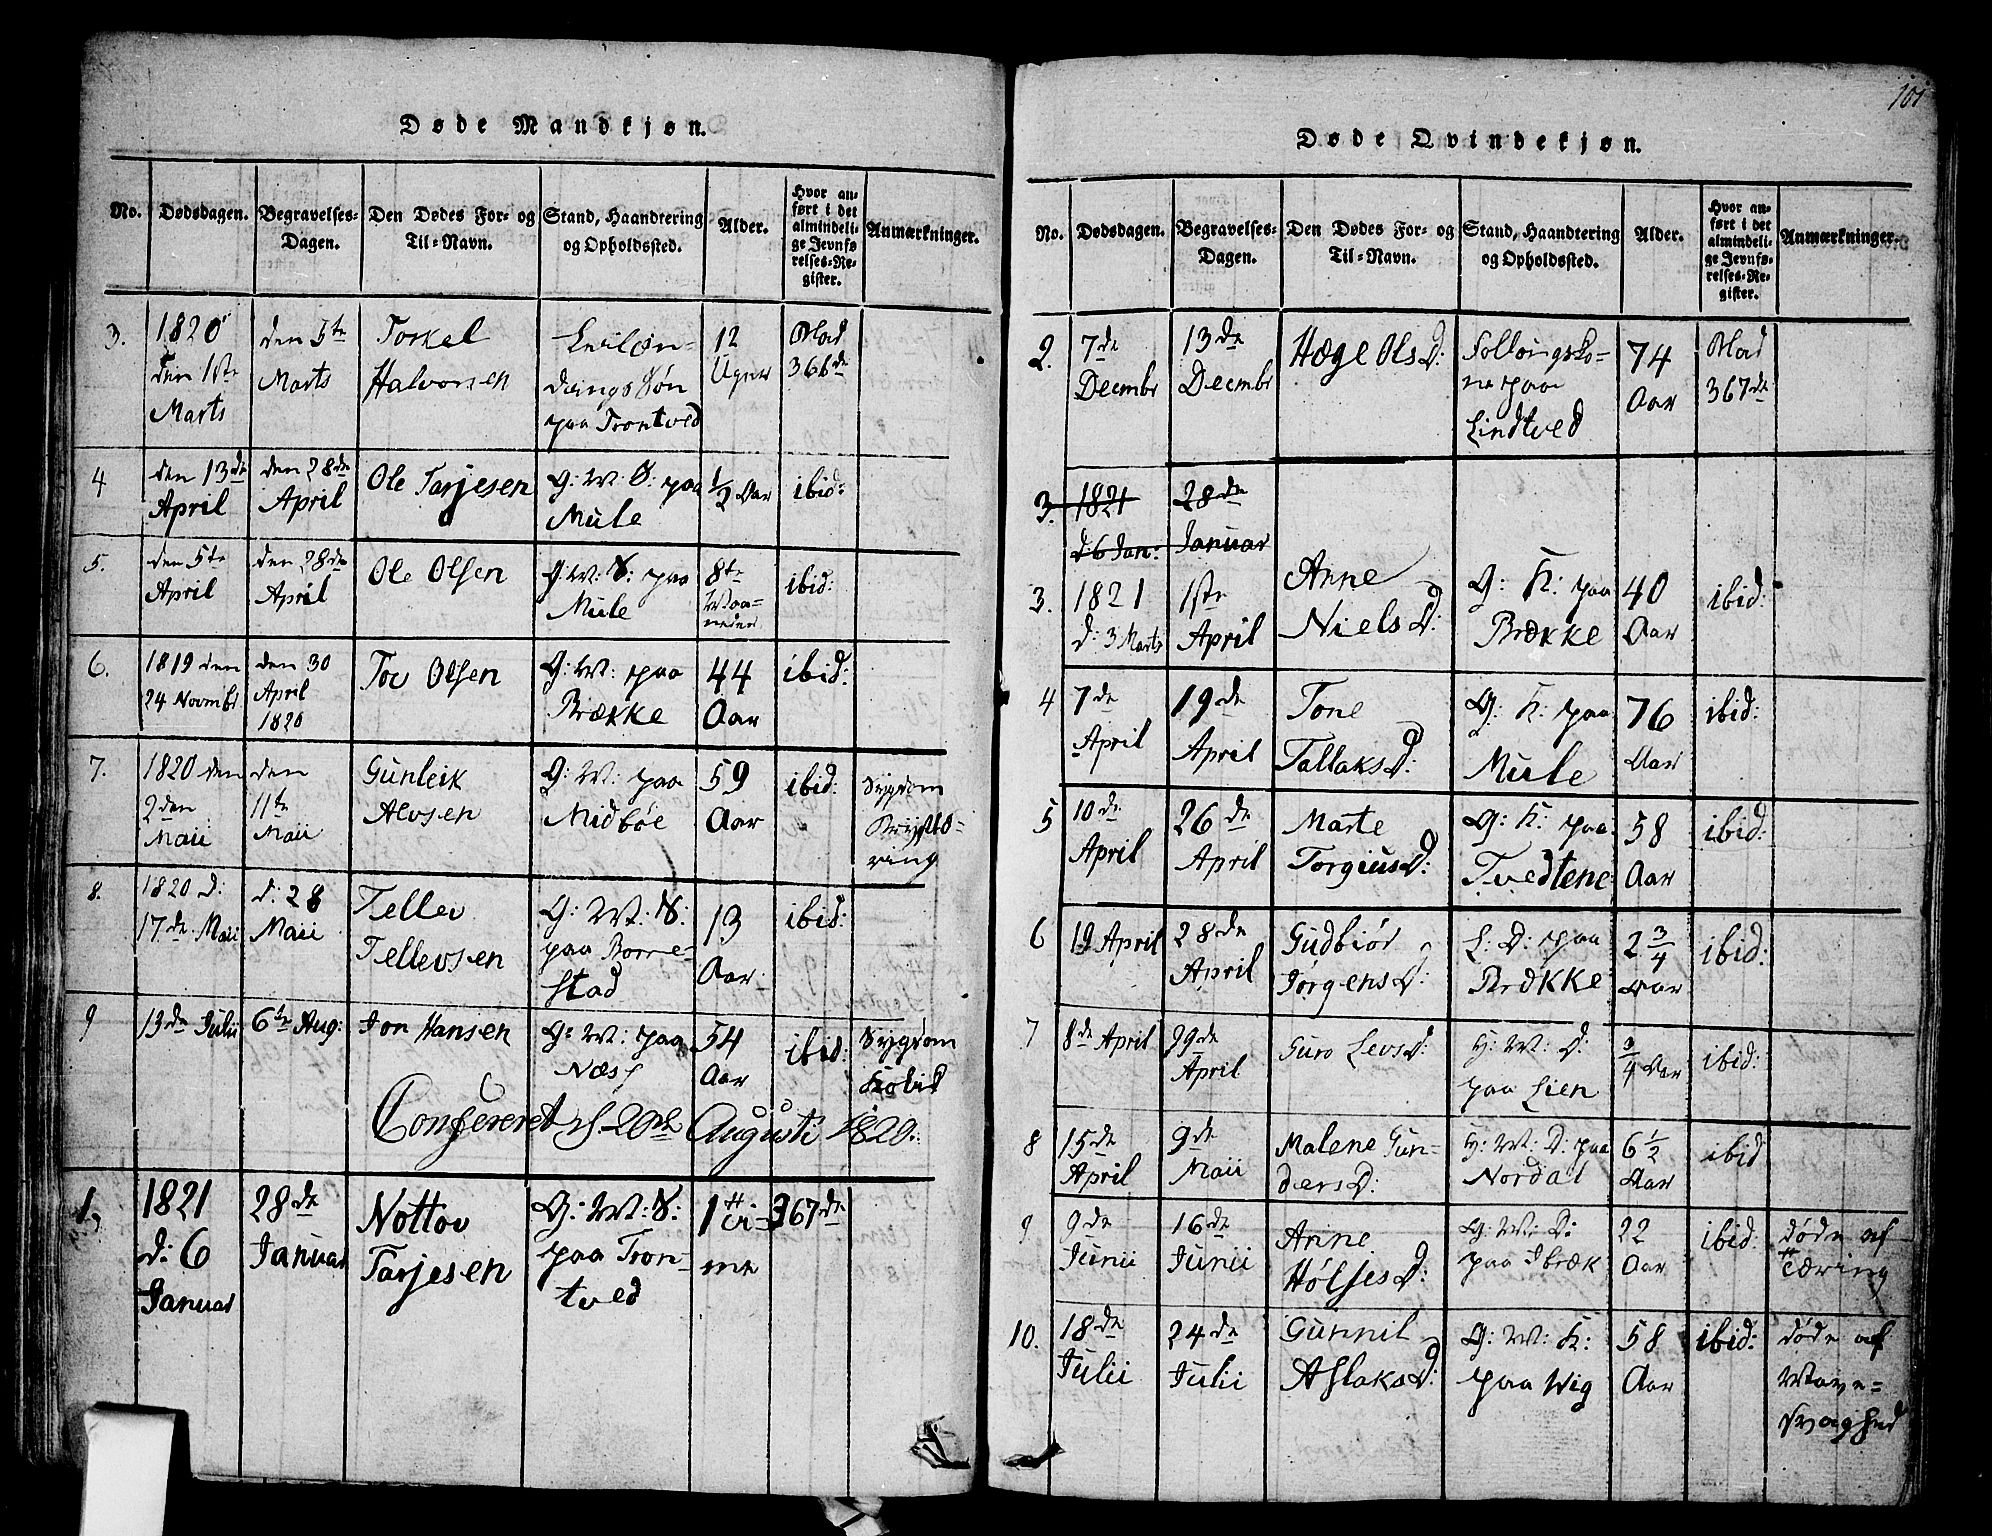 Døde Mandkjøn.
No. Dødsdagen. Begravelses-Dagen. Den Dødes For- og Til-Navn. Stand, Haandtering og Opholdssted. Alder. Hvor anført i det almindelige Jevnførelses-Register. Anmærkninger.
3. 1820 den 1ste Marts den 5te Marts Torkel Halvorsen paa Trontved 12 Uger Blad 366de
4 den 13de April den 28de April Ole Tarjesen G: M: S: paa Mule 1/2 Aar ibid:
5. den 5te April den 28de April Ole Olsen G: M: S: paa Mule 8te Maaneder ibid:
6. 1819 den 24 Novmbr den 30 April 1820 Tov Olsen G: M: paa Brække 44 Aar ibid:
7. 1820 den 2den Maii den 11te Maii Gunleik Alvsen G: M: paa Midbøe 59 Aar ibid: Sygdom Brystbring
8. 1820 d: 17de Maii d: 28 Maii Tellev Tellevsen G: M: S: paa Borrestad 13 Aar ibid:
9 13de Julii 6te Aug: Jon Hansen G: M: paa Næs 54 Aar ibid: Sygdom
Confereret d. 20de Augusti 1820.
1. 1821 d: 6 Januar 28de Januar Nottov Tarjesen G: M: S: paa Trontved 1 Time 367de
101
Døde Qvindekjøn.
No. Dødsdagen. Begravelses-Dagen. Den Dødes For- og Til-Navn. Stand, Haandtering og Opholdssted. Alder. Hvor anført i det almindelige Jevnførelses-Register. Anmærkninger.
2. 7de Decmbr 13de Decmbr Hæge OlsD: Follougskone paa Lindtved 74 Aar Blad 367de
3. 1821 d: 6 Jan: 28de Januar
3. 1821 d: 3 Marts 1ste April Anne NielsD: G: K: paa Brække 40 Aar ibid:
4 7de April 19de April Tone TallaksD: G: K: paa Mule 76 Aar ibid:
5 10de April 26de April Marte TorgiusD: G: K: paa Tvedtene 58 Aar ibid:
6 19 April 28de April Gudbiør JørgensD: L: D: paa Brække 2 3/4 Aar ibid:
7 8de April 29de April Guro LevsD: H: M: D: paa Lien 3/4 Aar ibid:
8 15de April 9de Maii Malene GundersD: H: M: D: paa Nordal 6 1/2 Aar ibid
9 9de Junii 16de Junii Anne HøljesD: G: M: D: paa Ibræk 22 Aar ibid: døde af Tæring
10. 18de Julii 24de Julii Gunnil AslaksD: G: M: K: paa Wig 58 Aar ibid: døde af Mavesvaghed